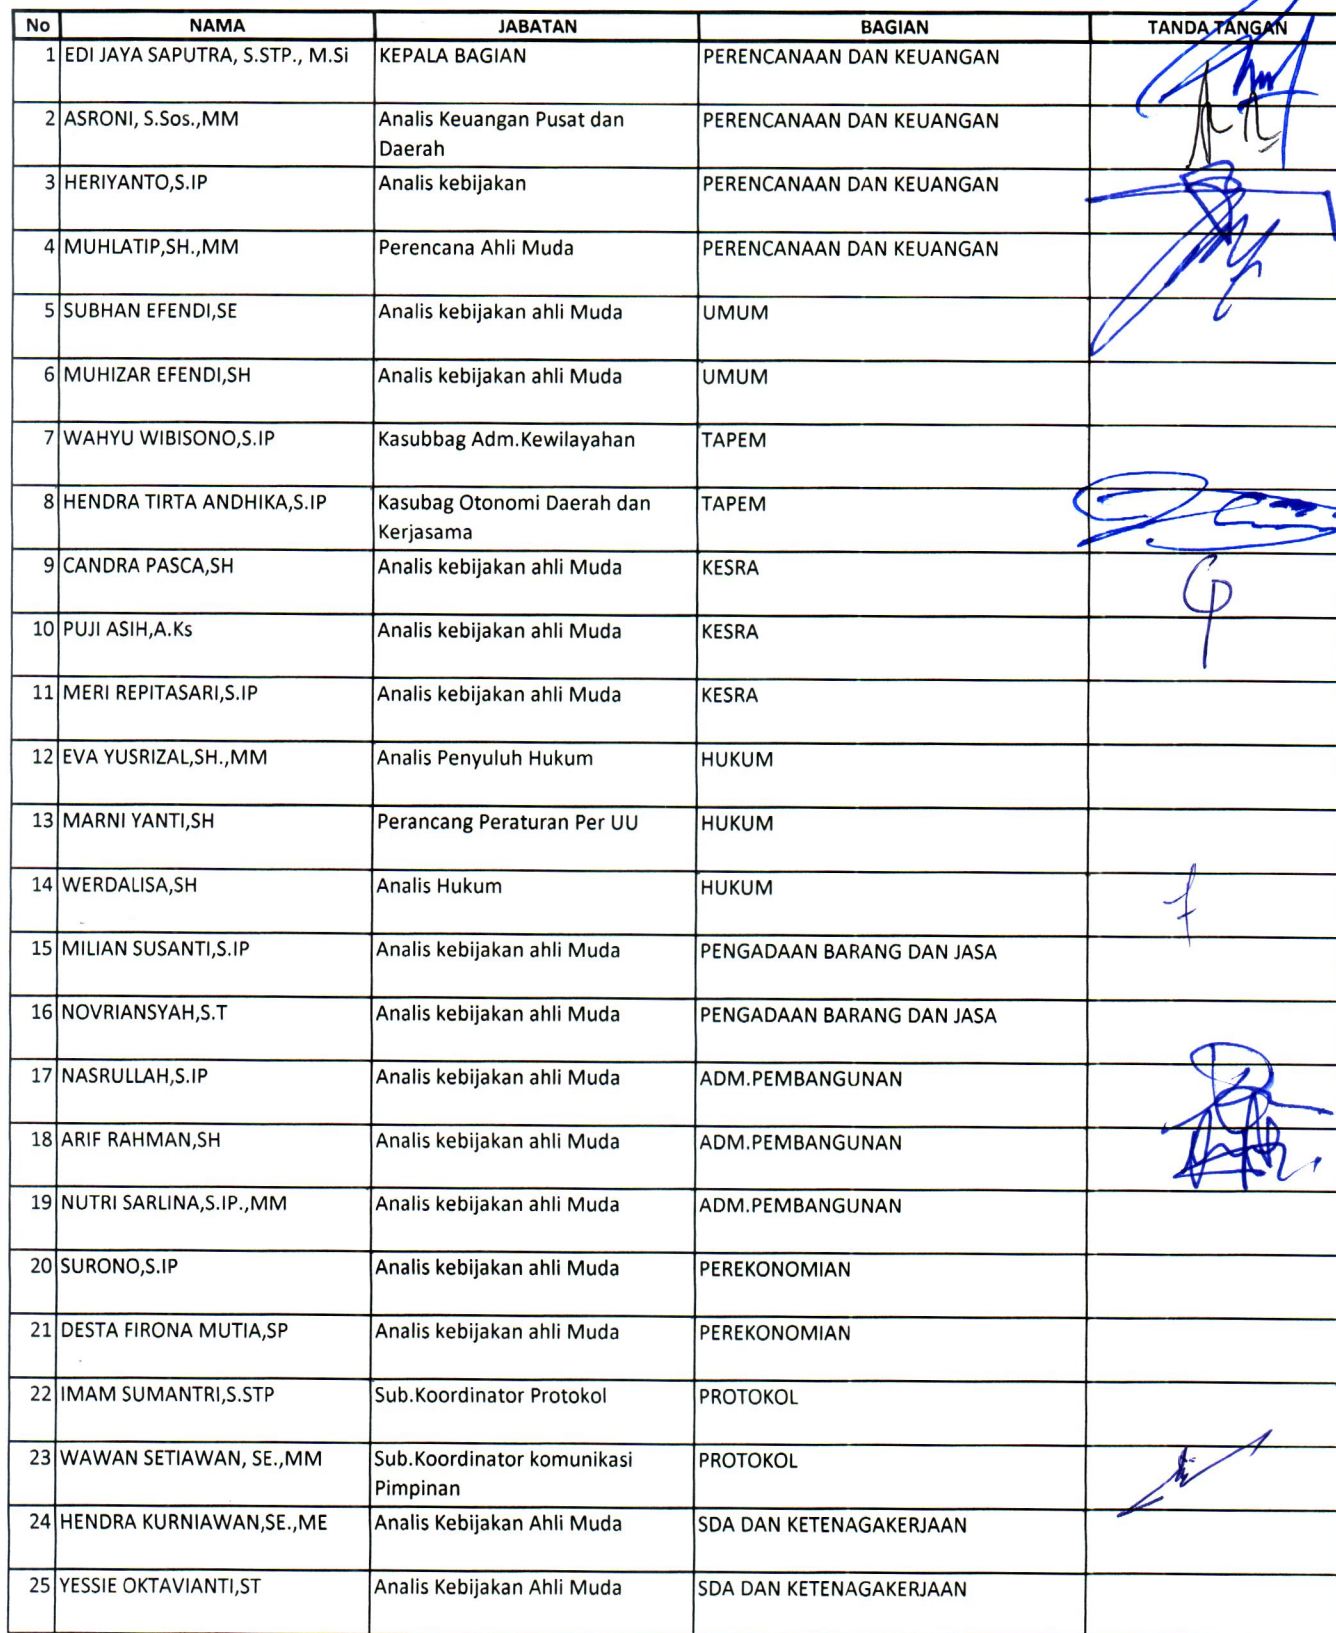 No NAMA JABATAN BAGIAN TANDA TANGAN
1 EDI JAYA SAPUTRA, S.STP., M.Si KEPALA BAGIAN PERENCANAAN DAN KEUANGAN
2 ASRONI, S.Sos.,MM Analis Keuangan Pusat dan PERENCANAAN DAN KEUANGAN
Daerah
3 HERIYANTO,S.IP Analis kebijakan PERENCANAAN DAN KEUANGAN
4 MUHLATIP,SH.,MM Perencana Ahli Muda PERENCANAAN DAN KEUANGAN
5 SUBHAN EFENDI,SE Analis kebijakan ahli Muda UMUM
6 MUHIZAR EFENDI,SH Analis kebijakan ahli Muda UMUM
7 WAHYU WIBISONO,S.IP Kasubbag Adm.Kewilayahan TAPEM
8 HENDRA TIRTA ANDHIKA,S.IP Kasubag Otonomi Daerah dan TAPEM
Kerjasama
9 CANDRA PASCA,SH Analis kebijakan ahli Muda KESRA
10 PUJI ASIH,A.Ks Analis kebijakan ahli Muda KESRA
11 MERI REPITASARI,S.IP Analis kebijakan ahli Muda KESRA
12 EVA YUSRIZAL,SH.,MM Analis Penyuluh Hukum HUKUM
13 MARNI YANTI,SH Perancang Peraturan Per UU HUKUM
14 WERDALISA,SH Analis Hukum HUKUM
15 MILIAN SUSANTI,S.IP Analis kebijakan ahli Muda PENGADAAN BARANG DAN JASA
16 NOVRIANSYAH,S.T Analis kebijakan ahli Muda PENGADAAN BARANG DAN JASA
17 NASRULLAH,S.IP Analis kebijakan ahli Muda ADM.PEMBANGUNAN
18 ARIF RAHMAN,SH Analis kebijakan ahli Muda ADM.PEMBANGUNAN
19 NUTRI SARLINA,S.IP.,MM Analis kebijakan ahli Muda ADM.PEMBANGUNAN
20 SURONO,S.IP Analis kebijakan ahli Muda PEREKONOMIAN
21 DESTA FIRONA MUTIA,SP Analis kebijakan ahli Muda PEREKONOMIAN
22 IMAM SUMANTRI,S.STP Sub.Koordinator Protokol PROTOKOL
23 WAWAN SETIAWAN, SE.,MM Sub.Koordinator komunikasi PROTOKOL
Pimpinan
24 HENDRA KURNIAWAN,SE.,ME Analis Kebijakan Ahli Muda SDA DAN KETENAGAKERJAAN
25 YESSIE OKTAVIANTI,ST Analis Kebijakan Ahli Muda SDA DAN KETENAGAKERJAAN